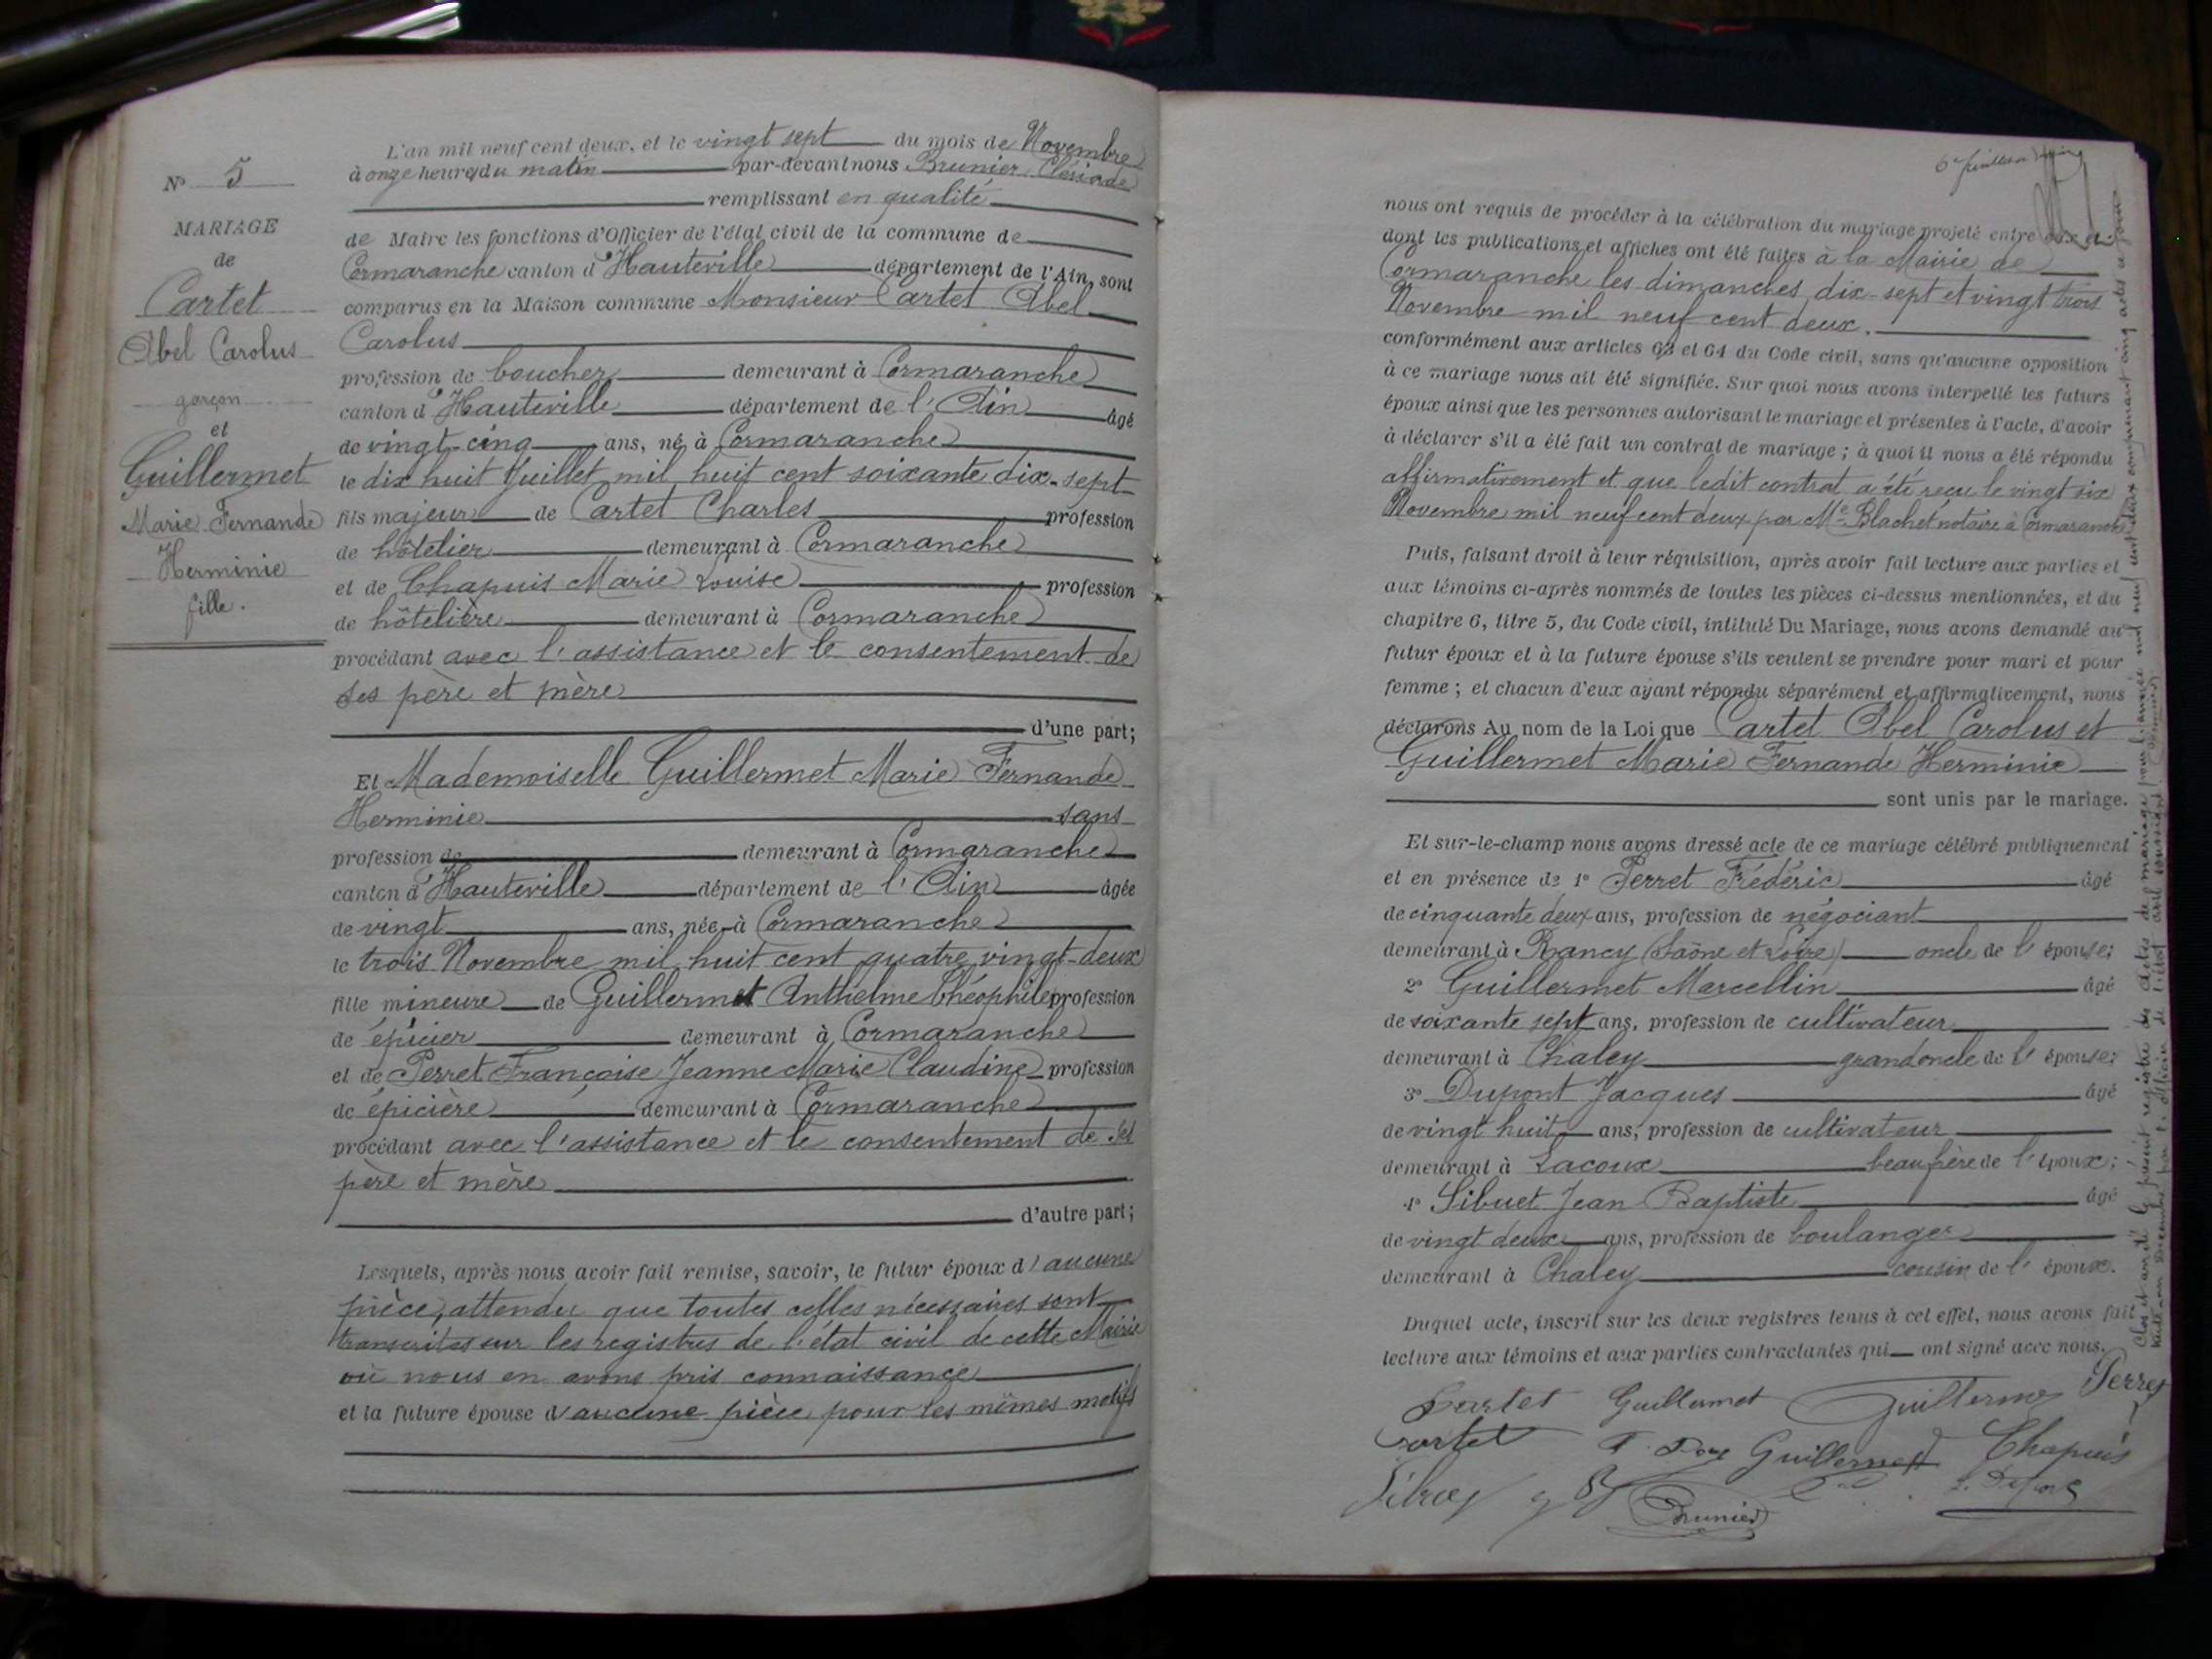 N° 5
MARIAGE
de
Cartet
Abel Carolus
garçon
et
Guillermet
Marie Fernande
Herminie
fille.
L'an mil neuf cent deux, et le vingt sept du mois de Novembre
à onze heures du matin par-devant nous Brunier
remplissant en qualité
de Maire les fonctions d'Officier de l'état civil de la commune de
Cormaranche canton d'Hauteville département de l'Ain, sont
comparus en la Maison commune Monsieur Cartet Abel
Carolus
profession de boucher demeurant à Cormaranche
canton d'Hauteville département de l'Ain âgé
de vingt cinq ans, né à Cormaranche
le dix huit Juillet mil huit cent soixante dix-sept
fils majeur de Cartet Charles profession
de hôtelier demeurant à Cormaranche
et de Chapuis Marie Louise profession
de hôtelière demeurant à Cormaranche
procédant avec l'assistance et le consentement de
ses père et mère
d'une part;
Et Mademoiselle Guillermet Marie Fernande
Herminie sans
profession de demeurant à Cormaranche
canton d'Hauteville département de l'Ain âgée
de vingt ans, née à Cormaranche
le trois Novembre mil huit cent quatre vingt-deux
fille mineure de Guillermet Anthelme Théophile profession
de épicier demeurant à Cormaranche
et de Perret Françoise Jeanne Marie Claudine profession
de épicière demeurant à Cormaranche
procédant avec l'assistance et le consentement de ses
père et mère
d'autre part;
Lesquels, après nous avoir fait remise, savoir, le futur époux d'aucune
pièce, attendu que toutes celles nécessaires sont
transcrites sur les registres de l'état civil de cette Mairie
où nous en avons pris connaissance
et la future épouse d'aucune pièce pour les mêmes motifs
nous ont requis de procéder à la célébration du mariage projeté entre eux et
dont les publications et affiches ont été faites à la Mairie de
Cormaranche les dimanches dix-sept et vingt trois
Novembre mil neuf cent deux.
conformément aux articles 63 et 64 du Code civil, sans qu'aucune opposition
à ce mariage nous ait été signifiée. Sur quoi nous avons interpellé les futurs
époux ainsi que les personnes autorisant le mariage et présentes à l'acte, d'avoir
à déclarer s'il a été fait un contrat de mariage ; à quoi il nous a été répondu
affirmativement et que ledit contrat a été reçu le vingt six
Novembre mil neuf cent deux par Me Blachet notaire à Cormaranche
Puis, faisant droit à leur réquisition, après avoir fait lecture aux parties et
aux témoins ci-après nommés de toutes les pièces ci-dessus mentionnées, et du
chapitre 6, titre 5, du Code civil, intitulé Du Mariage, nous avons demandé au
futur époux et à la future épouse s'ils veulent se prendre pour mari et pour
femme ; et chacun d'eux ayant répondu séparément et affirmativement, nous
déclarons Au nom de la Loi que Cartet Abel Carolus et
Guillermet Marie Fernande Herminie
sont unis par le mariage.
Et sur-le-champ nous avons dressé acte de ce mariage célébré publiquement
et en présence de 1° Perret Frédéric âgé
de cinquante deux ans, profession de négociant
demeurant à Rancy (Saône et Loire) oncle de l'épouse;
2° Guillermet Marcellin âgé
de soixante sept ans, profession de cultivateur
demeurant à Chaley grandoncle de l'épouse;
3° Dupont Jacques âgé
de vingt huit ans, profession de cultivateur
demeurant à Lacoux beaufrère de l'époux;
4° Sibuet Jean Baptiste âgé
de vingt deux ans, profession de boulanger
demeurant à Chaley cousin de l'époux.
Duquel acte, inscrit sur les deux registres tenus à cet effet, nous avons fait
lecture aux témoins et aux parties contractantes qui ont signé avec nous.
Cartet Guillermet Guillermet Perret
Cartet Guillermet Chapuis
Brunier
Clos et arrêté le présent registre des actes de mariage pour l'année mil neuf cent deux comprenant cinq actes